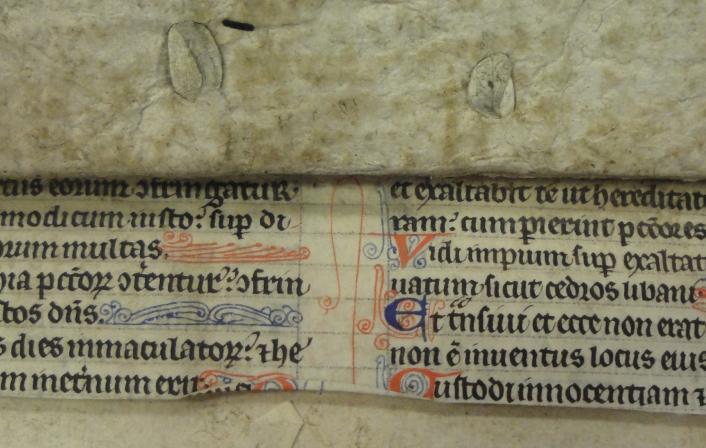 eorum ɔfringatur.
modicum iusto: sup̄ di
multas.
pctōꝝ ɔtentur: ɔfrin
dn̄s.
dies immaculatoꝝ: ⁊ he
in et̄num
et exaltabit te ut hereditat
ram: cum perierint pctōres
Vidi impium sup̄ exaltat
uatum: sicut cedros libani
Et tn̄siui et ecce non erat
non ē inuentus locus eius
Custodi innocentiam ⁊